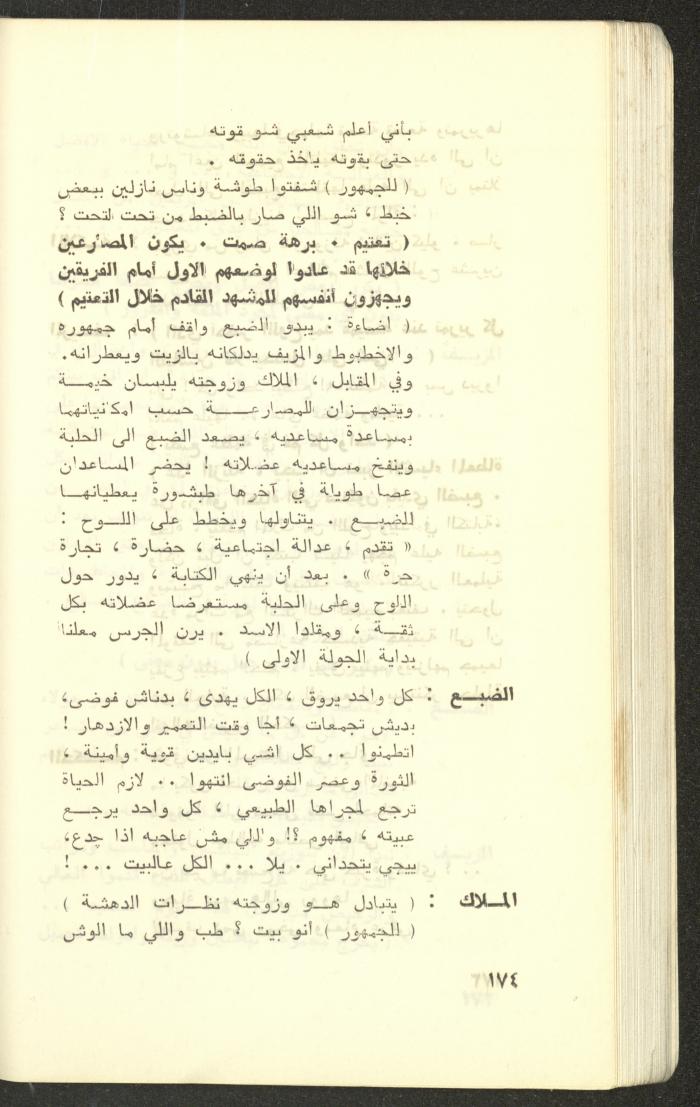 بأني أعلم شعبي شو قوته
حتى بقوته ياخذ حقوقه .
( للجمهور ) شفتوا طوشة وناس نازلين ببعض
خبط ، شو اللي صار بالضبط من تحت لتحت ؟
( تعتيم . برهة صمت . يكون المصارعين
خلالها قد عادوا لوضعهم الاول أمام الفريقين
ويجهزون أنفسهم للمشهد القادم خلال التعتيم )
( اضاءة : يبدو الضبع واقف أمام جمهوره
والاخطبوط والمزيف يدلكانه بالزيت ويعطرانه.
وفي المقابل ، الملاك وزوجته يلبسان خيمــة
ويتجهــزان للمصارعــــة حسب امكانياتهما
بمساعدة مساعديه ، يصعد الضبع الى الحلبة
وينفخ مساعديه عضلاته ! يحضر المساعدان
عصا طويلة في آخرها طبشورة يعطيانهــا
للضبــع . يتناولها ويخطط على اللــوح :
« تقدم ، عدالة اجتماعية ، حضارة ، تجارة
حرة » . بعد أن ينهي الكتابة ، يدور حول
اللوح وعلى الحلبة مستعرضا عضلاته بكل
ثقــة ، ومقلدا الاسد . يرن الجرس معلنا
بداية الجولة الاولى )
الضبــع : كل واحد يروق ، الكل يهدى ، بدناش فوضى،
بديش تجمعات ، أجا وقت التعمير والازدهار !
اتطمنوا .. كل اشي بايدين قوية وأمينة ،
الثورة وعصر الفوضى انتهوا .. لازم الحياة
ترجع لمجراها الطبيعي ، كل واحد يرجــع
عبيته ، مفهوم ؟! واللي مش عاجبه اذا جدع،
ييجي يتحداني . يلا ... الكل عالبيت ... !
المــلاك : ( يتبادل هــو وزوجته نظــرات الدهشة )
( للجمهور ) أنو بيت ؟ طب واللي ما الوش
١٧٤